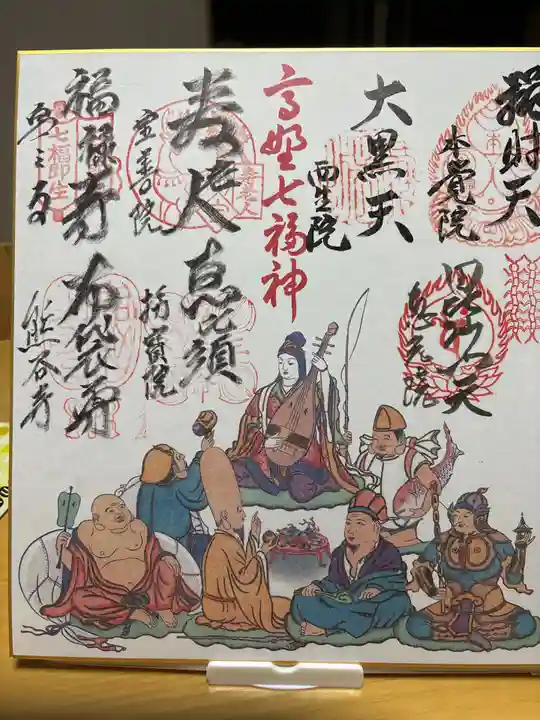 弁財天
本覚院
大黒天
西生院
高野七福神
寿老人
宝善院
福禄寿
七福即生
毘沙門天
恵光院
恵比須
布袋尊
熊谷寺